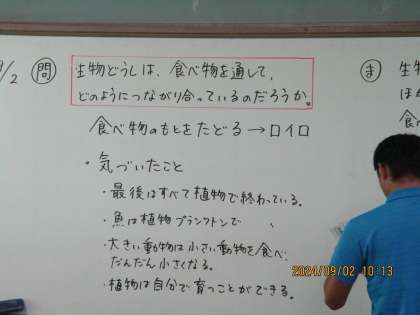 9/2 問 生物どうしは、食べ物を通して、
どのようにつながり合っているのだろうか。
食べ物のもとをたどる→ロイロ
・気づいたこと
・最後はすべて植物で終わっている。
・魚は植物プランクトンで 〃
・大きい動物は小さい動物を食べ、
だんだん小さくなる。
・植物は自分で育つことができる。
ま 生物
ほか
食べ
2024/09/02 10:13